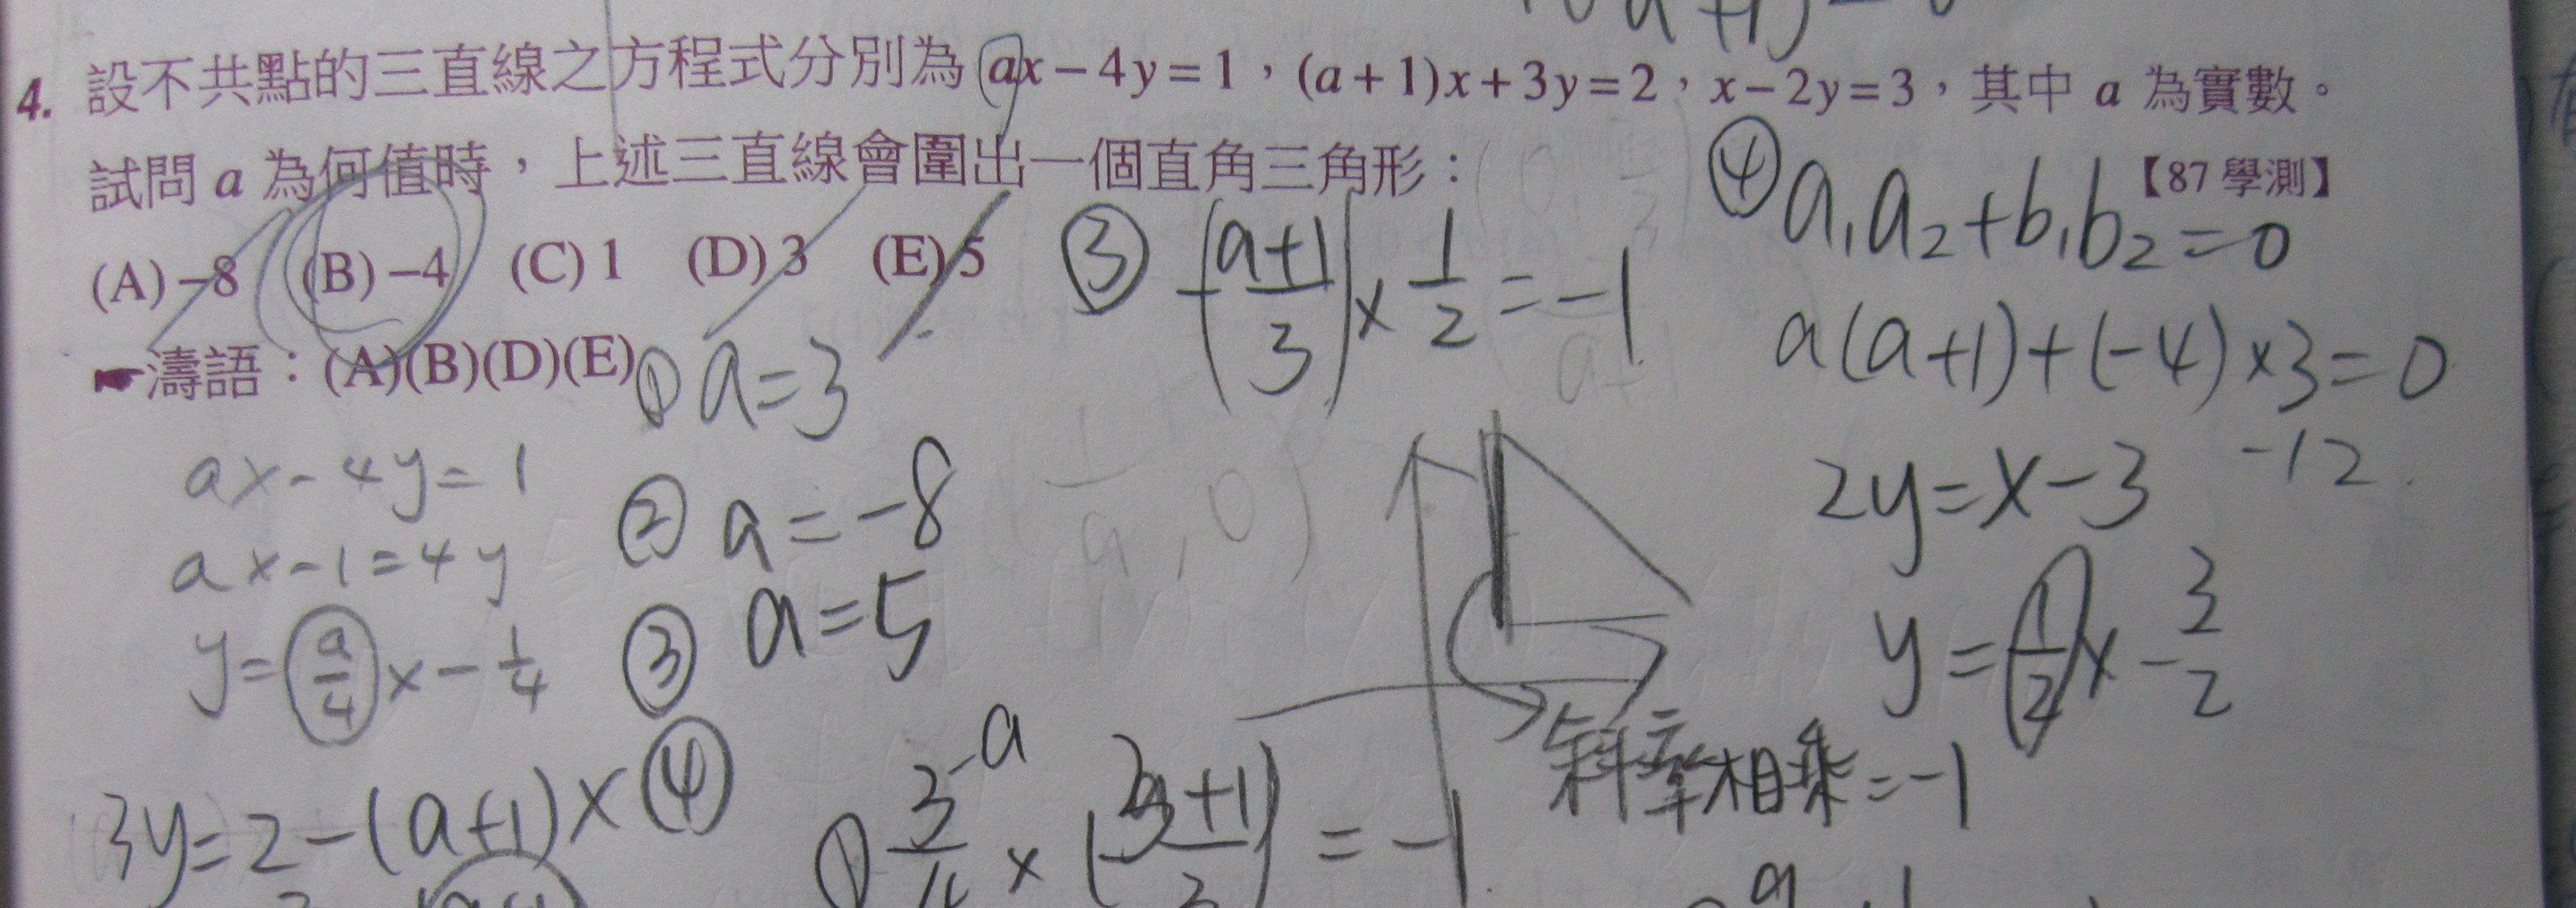 4. 設不共點的三直線之方程式分別為 ax－4y＝1，(a＋1)x＋3y＝2，x－2y＝3，其中 a 為實數。
試問 a 為何值時，上述三直線會圍出一個直角三角形：【87 學測】
(A) −8 (B) −4 (C) 1 (D) 3 (E) 5
☛濤語：(A)(B)(D)(E)
① a=3
② a=-8
③ a=5
ax-4y=1
ax-1=4y
y=a/4 x-1/4
3y=2-(a+1)x
④
③ -(a+1/3)×1/2=-1
④ a₁a₂+b₁b₂=0
a(a+1)+(-4)×3=0
-12
2y=x-3
y=1/2 x-3/2
斜率相乘=-1